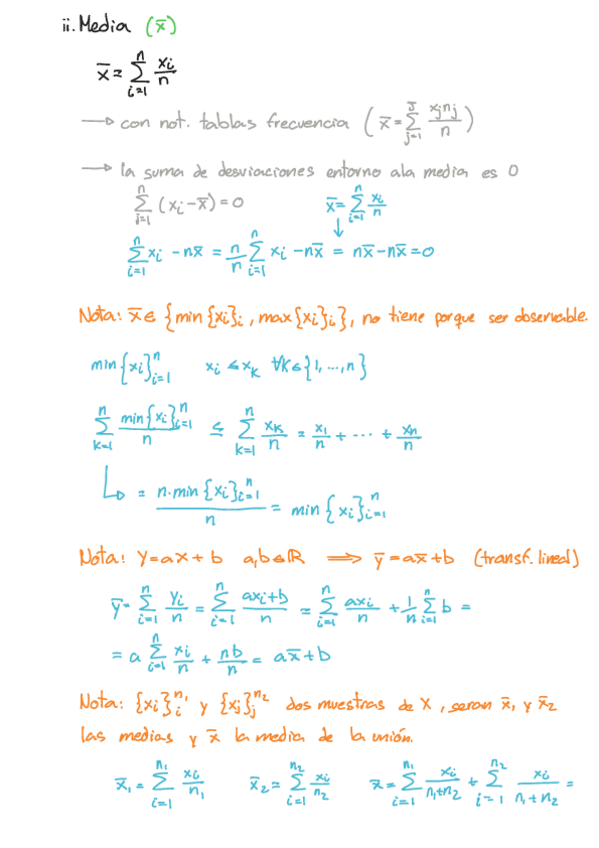 ii. Media (x̄)
x̄ = ∑_{i=1}^{n} x_i/n
→ con not. tablas frecuencia (x̄ = ∑_{j=1}^{J} x_j n_j/n)
→ la suma de desviaciones entorno a la media es 0
∑_{i=1}^{n} (x_i - x̄) = 0 x̄ = ∑_{i=1}^{n} x_i/n
↓
∑_{i=1}^{n} x_i - nx̄ = n/n ∑_{i=1}^{n} x_i - nx̄ = nx̄ - nx̄ = 0
Nota: x̄ ∈ {min{x_i}_i, max{x_i}_i}, no tiene porque ser observable.
min{x_i}_{i=1}^{n} x_i ≤ x_k ∀k∈{1, ..., n}
∑_{k=1}^{n} min{x_i}_{i=1}^{n}/n ≤ ∑_{k=1}^{n} x_k/n = x_1/n + ... + x_n/n
↳ = n·min{x_i}_{i=1}^{n}/n = min{x_i}_{i=1}^{n}
Nota: Y = aX + b a,b∈ℝ ⟹ ȳ = ax̄ + b (transf. lineal)
ȳ = ∑_{i=1}^{n} y_i/n = ∑_{i=1}^{n} ax_i+b/n = ∑_{i=1}^{n} ax_i/n + 1/n ∑_{i=1}^{n} b =
= a ∑_{i=1}^{n} x_i/n + nb/n = ax̄ + b
Nota: {x_i}_i^{n_1} y {x_j}_j^{n_2} dos muestras de X, seran x̄_1 y x̄_2
las medias y x̄ la media de la unión.
x̄_1 = ∑_{i=1}^{n_1} x_i/n_1 x̄_2 = ∑_{i=1}^{n_2} x_i/n_2 x̄ = ∑_{i=1}^{n_1} x_i/n_1+n_2 + ∑_{i=1}^{n_2} x_i/n_1+n_2 =